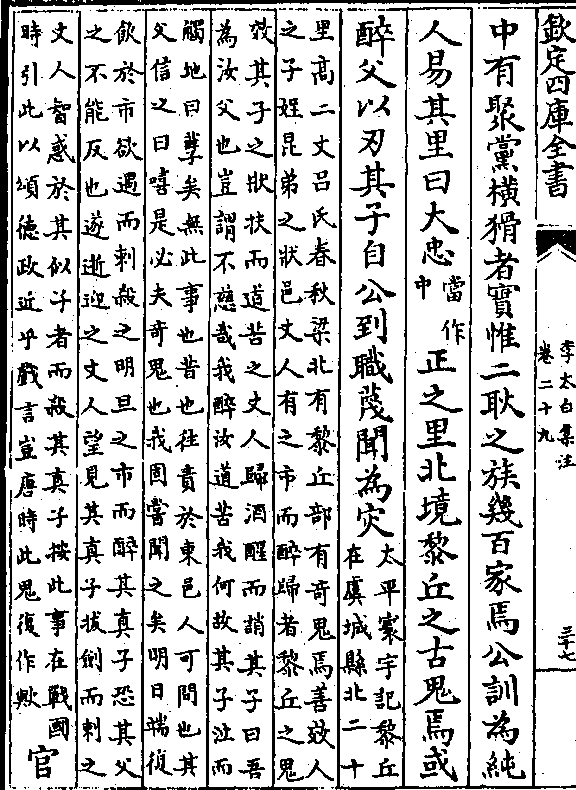 欽定四庫全書
李太白集注
卷二十九
三十七
中有聚黨橫猾者實惟二耿之族幾百家焉公訓為純
人易其里曰大忠當作中正之里北境黎丘之古鬼焉或
醉父以刃其子自公到職蔑聞為灾太平寰宇記黎丘
在虞城縣北二十
里高二丈吕氏春秋梁北有黎丘部有奇鬼焉善效人
之子姪昆弟之狀邑丈人有之市而醉歸者黎丘之鬼
效其子之狀扶而道苦之丈人歸酒醒而誚其子曰吾
為汝父也豈謂不慈哉我醉汝道苦我何故其子泣而
觸地曰孽矣無此事也昔也往責於東邑人可問也其
父信之曰嘻是必夫奇鬼也我固嘗聞之矣明日端復
飲於市欲遇而刺殺之明旦之市而醉其真子恐其父
之不能反也遂逝迎之丈人望見其真子拔劍而刺之
丈人智惑於其似子者而殺其真子按此事在戰國
時引此以頌德政近乎戲言豈唐時此鬼復作歟
官